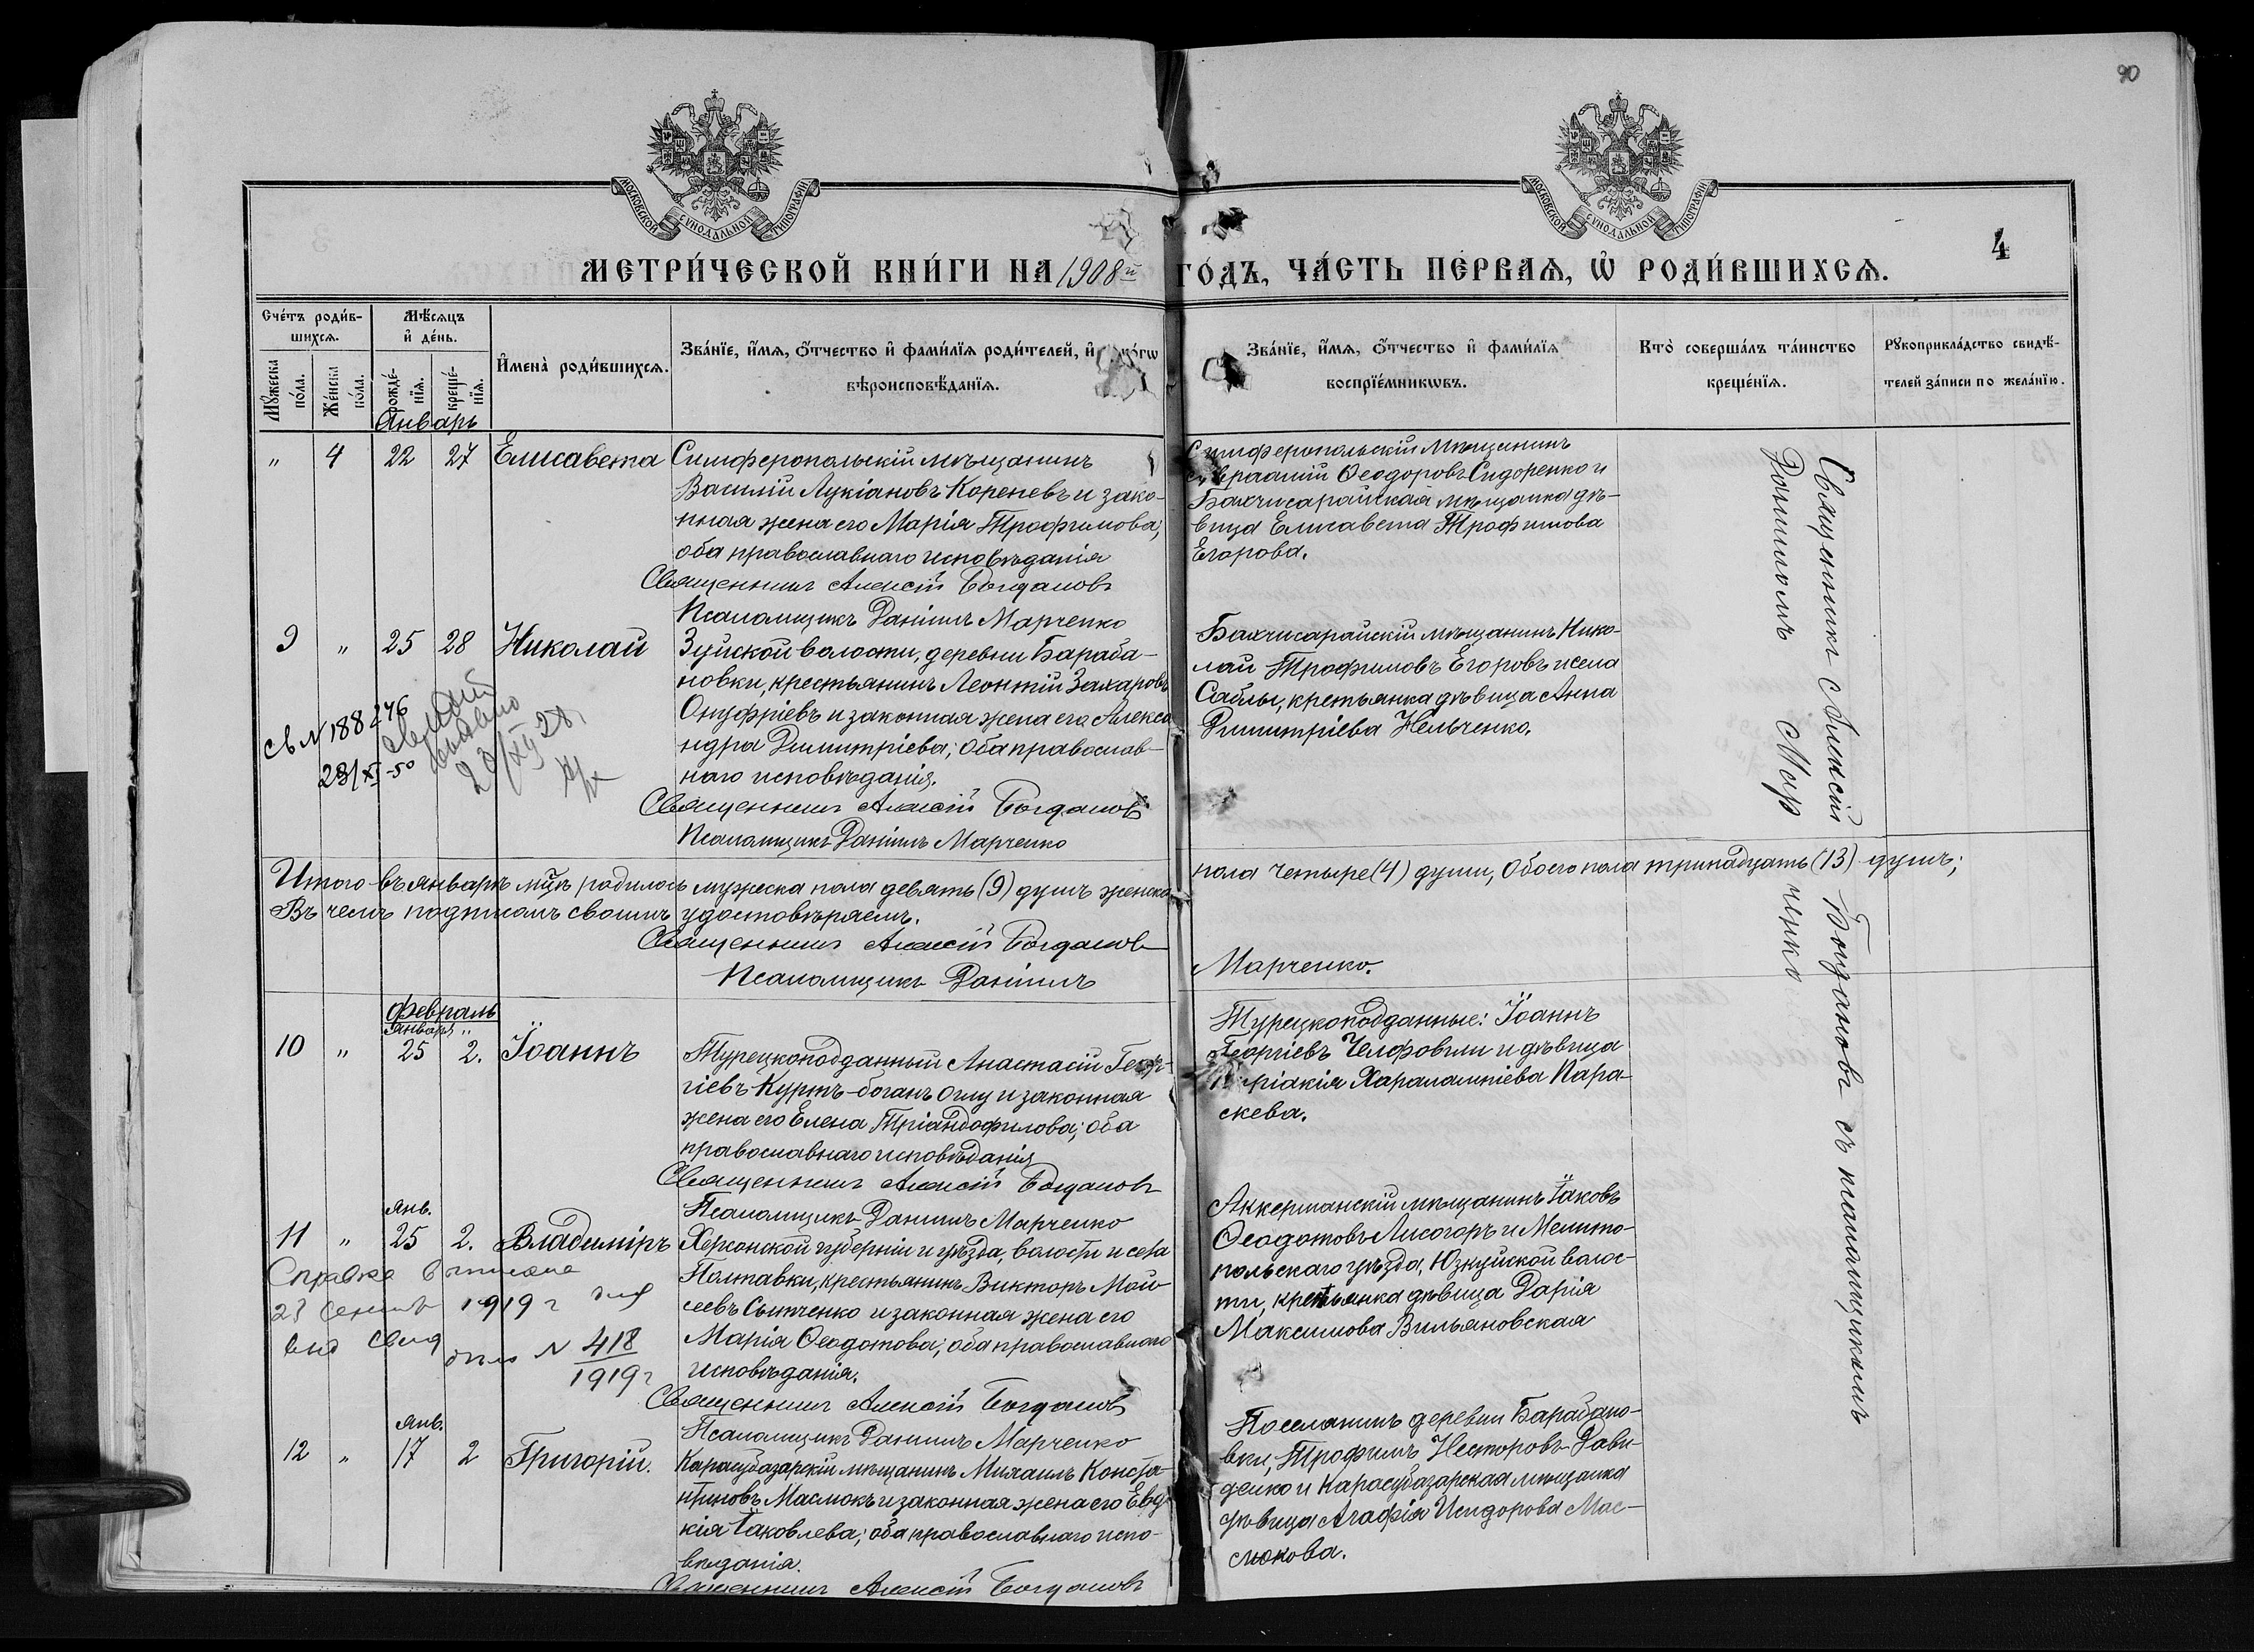 90
МОСКОВСКОЙ СУНОДАЛЬНОЙ ТИПОГРАФІИ
МОСКОВСКОЙ СУНОДАЛЬНОЙ ТИПОГРАФІИ
4
МЕТРИ́ЧЕСКОЙ КНИ́ГИ НА 1908й ГО́ДЪ, ЧА́СТЬ ПЕ́РВАѦ, Ѡ҆ РОДИ́ВШИХСѦ.
Сче́тъ роди́в-
шихсѧ.
Мꙋ́жеска по́ла.
Же́нска по́ла.
Мѣ́сѧцъ
и҆ де́нь.
рожде́-
нїѧ.
креще́-
нїѧ.
И҆мена̀ роди́вшихсѧ.
Зва́нїе, и҆́мѧ, ѻ҆́тчество и҆ фами́лїѧ роди́телей, и҆ ко́гѡ
вѣроисповѣ́данїѧ.
Зва́нїе, и҆́мѧ, ѻ҆́тчество и҆ фами́лїѧ
воспрїе́мникѡвъ.
Кто̀ соверша́лъ та́инство
креще́нїѧ.
Рꙋкоприкла́дство свидѣ́-
телей за́писи по жела́нїю.
Январь
" 4 22 27 Елисавета
Симферопольскій мѣщанинъ
Василій Лукіановъ Кореневъ и зако-
нная жена его Марія Трофимова;
оба православнаго исповѣданія
Священникъ Алексій Богдановъ
Псаломщикъ Даніилъ Марченко
Симферопольскій мѣщанинъ
Авраамій Ѳеодоровъ Сидоренко и
Бахчисарайская мѣщанка дѣ-
вица Елисавета Трофимова
Егорова.
Священникъ Алексій Богдановъ съ псаломщикомъ
Данииломъ Марченко
9 " 25 28 Николай
Зуйской волости, деревни Бараба-
новки, крестьянинъ Леонтій Захаровъ
Онуфріевъ и законная жена его Алекса-
ндра Димитріева; оба православ-
наго исповѣданія.
Священникъ Алексій Богдановъ
Псаломщикъ Даніилъ Марченко
Бахчисарайскій мѣщанинъ Нико-
лай Трофимовъ Егоровъ и села
Саблы, кретьянка дѣвица Анна
Димитріева Нельченко.
св N 188246
23/XI-50
28
Итого въ январѣ мцѣ родилось мужеска пола девять (9) душъ женска пола четыре (4) души, обоего пола тринадцать (13) душъ;
Въ чемъ подписомъ своимъ удостовѣряемъ.
Священникъ Алексій Богдановъ
Псаломщикъ Даніилъ Марченко.
Февраль
Январь "
10 " 25 2. Іоаннъ
Турецкоподданный Анастасій Геор-
гіевъ Куртъ-боганъ Оглу и законная
жена его Елена Тріандофилова; оба
православнаго исповѣданія
Священникъ Алексій Богдановъ
Псаломщикъ Даніилъ Марченко
Турецкоподданные: Іоаннъ
Георгіевъ Челфовъли и дѣвица
Киріакія Харалампіева Пара-
скева.
Янв.
11 " 25 2. Владиміръ
Херсонской губерніи и уѣзда, волости и села
Полтавки, крестьянинъ Викторъ Мои-
сеевъ Сытченко и законная жена его
Марія Ѳеодотова; оба православнаго
исповѣданія.
Священникъ Алексій Богдановъ
Псаломщикъ Даніилъ Марченко
Аккерманскій мѣщанинъ Іаковъ
Ѳеодотовъ Лисогоръ и Мелито-
польскаго уѣзда, Юзкуйской волос-
ти, кретьянка дѣвица Дарія
Максимова Вильяновская
Справка
1919 г
N 418
1919 г
Янв.
12 " 17 2 Григорій.
Карасубазарскій мѣщанинъ Михаилъ Конста-
нтиновъ Маслюкъ и законная жена его Евдо-
кія Іаковлева; оба православнаго испо-
вѣданія.
Священникъ Алексій Богдановъ
Поселянинъ деревни Барабано-
вки, Трофимъ Несторовъ Дави-
денко и Карасубазарская мѣщанка
дѣвица Агафія Исидорова Мас-
люкова.